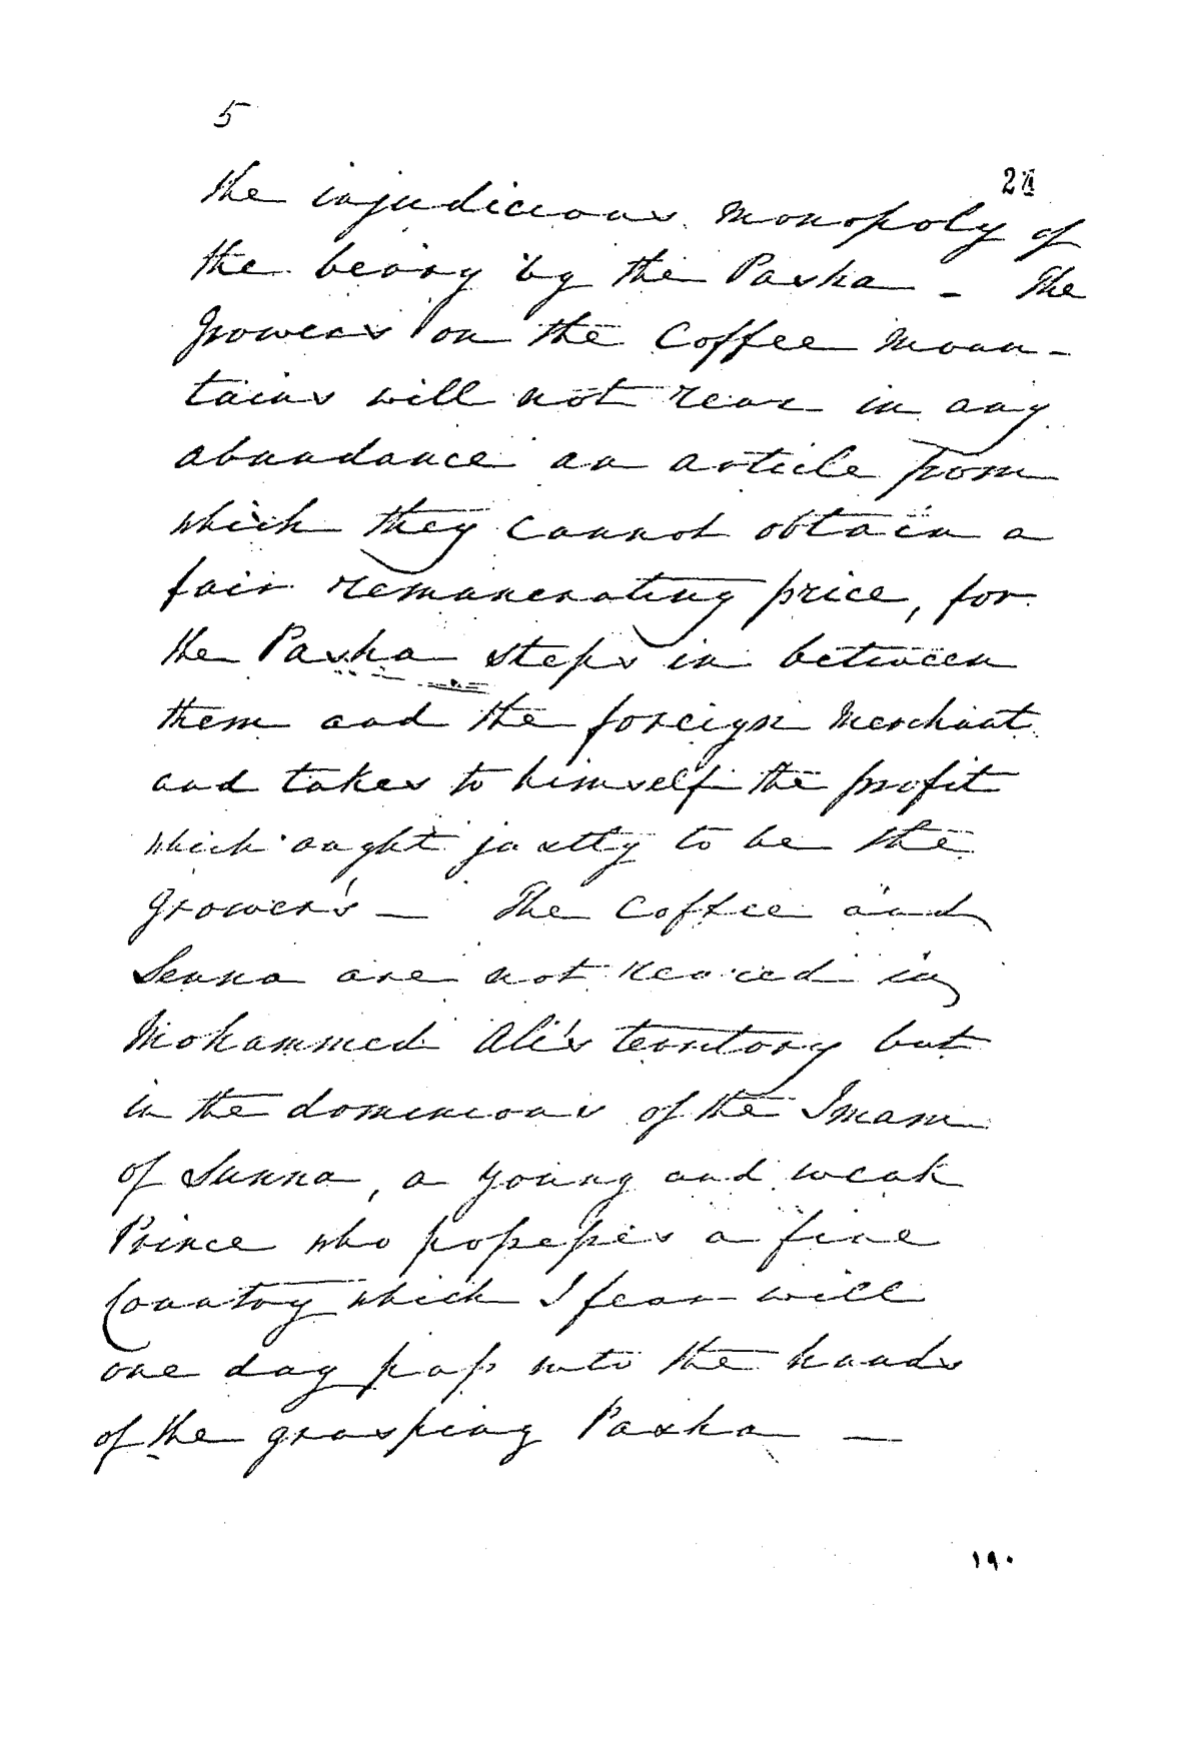 5
the injudicious monopoly of
the berry by the Pasha – The
Growers on the Coffee Moun-
tains will not rear in any
abundance an article from
which they cannot obtain a
fair remunerating price, for
the Pasha steps in between
them and the foreign Merchant
and takes to himself the profit
which ought justly to be the
grower's – The Coffee and
Senna are not reared in
Mohammed Ali's territory but
in the dominions of the Imam
of Sanna, a young and weak
Prince who possesses a fine
Country which I fear will
one day pass into the hands
of the grasping Pasha –
١٩٠